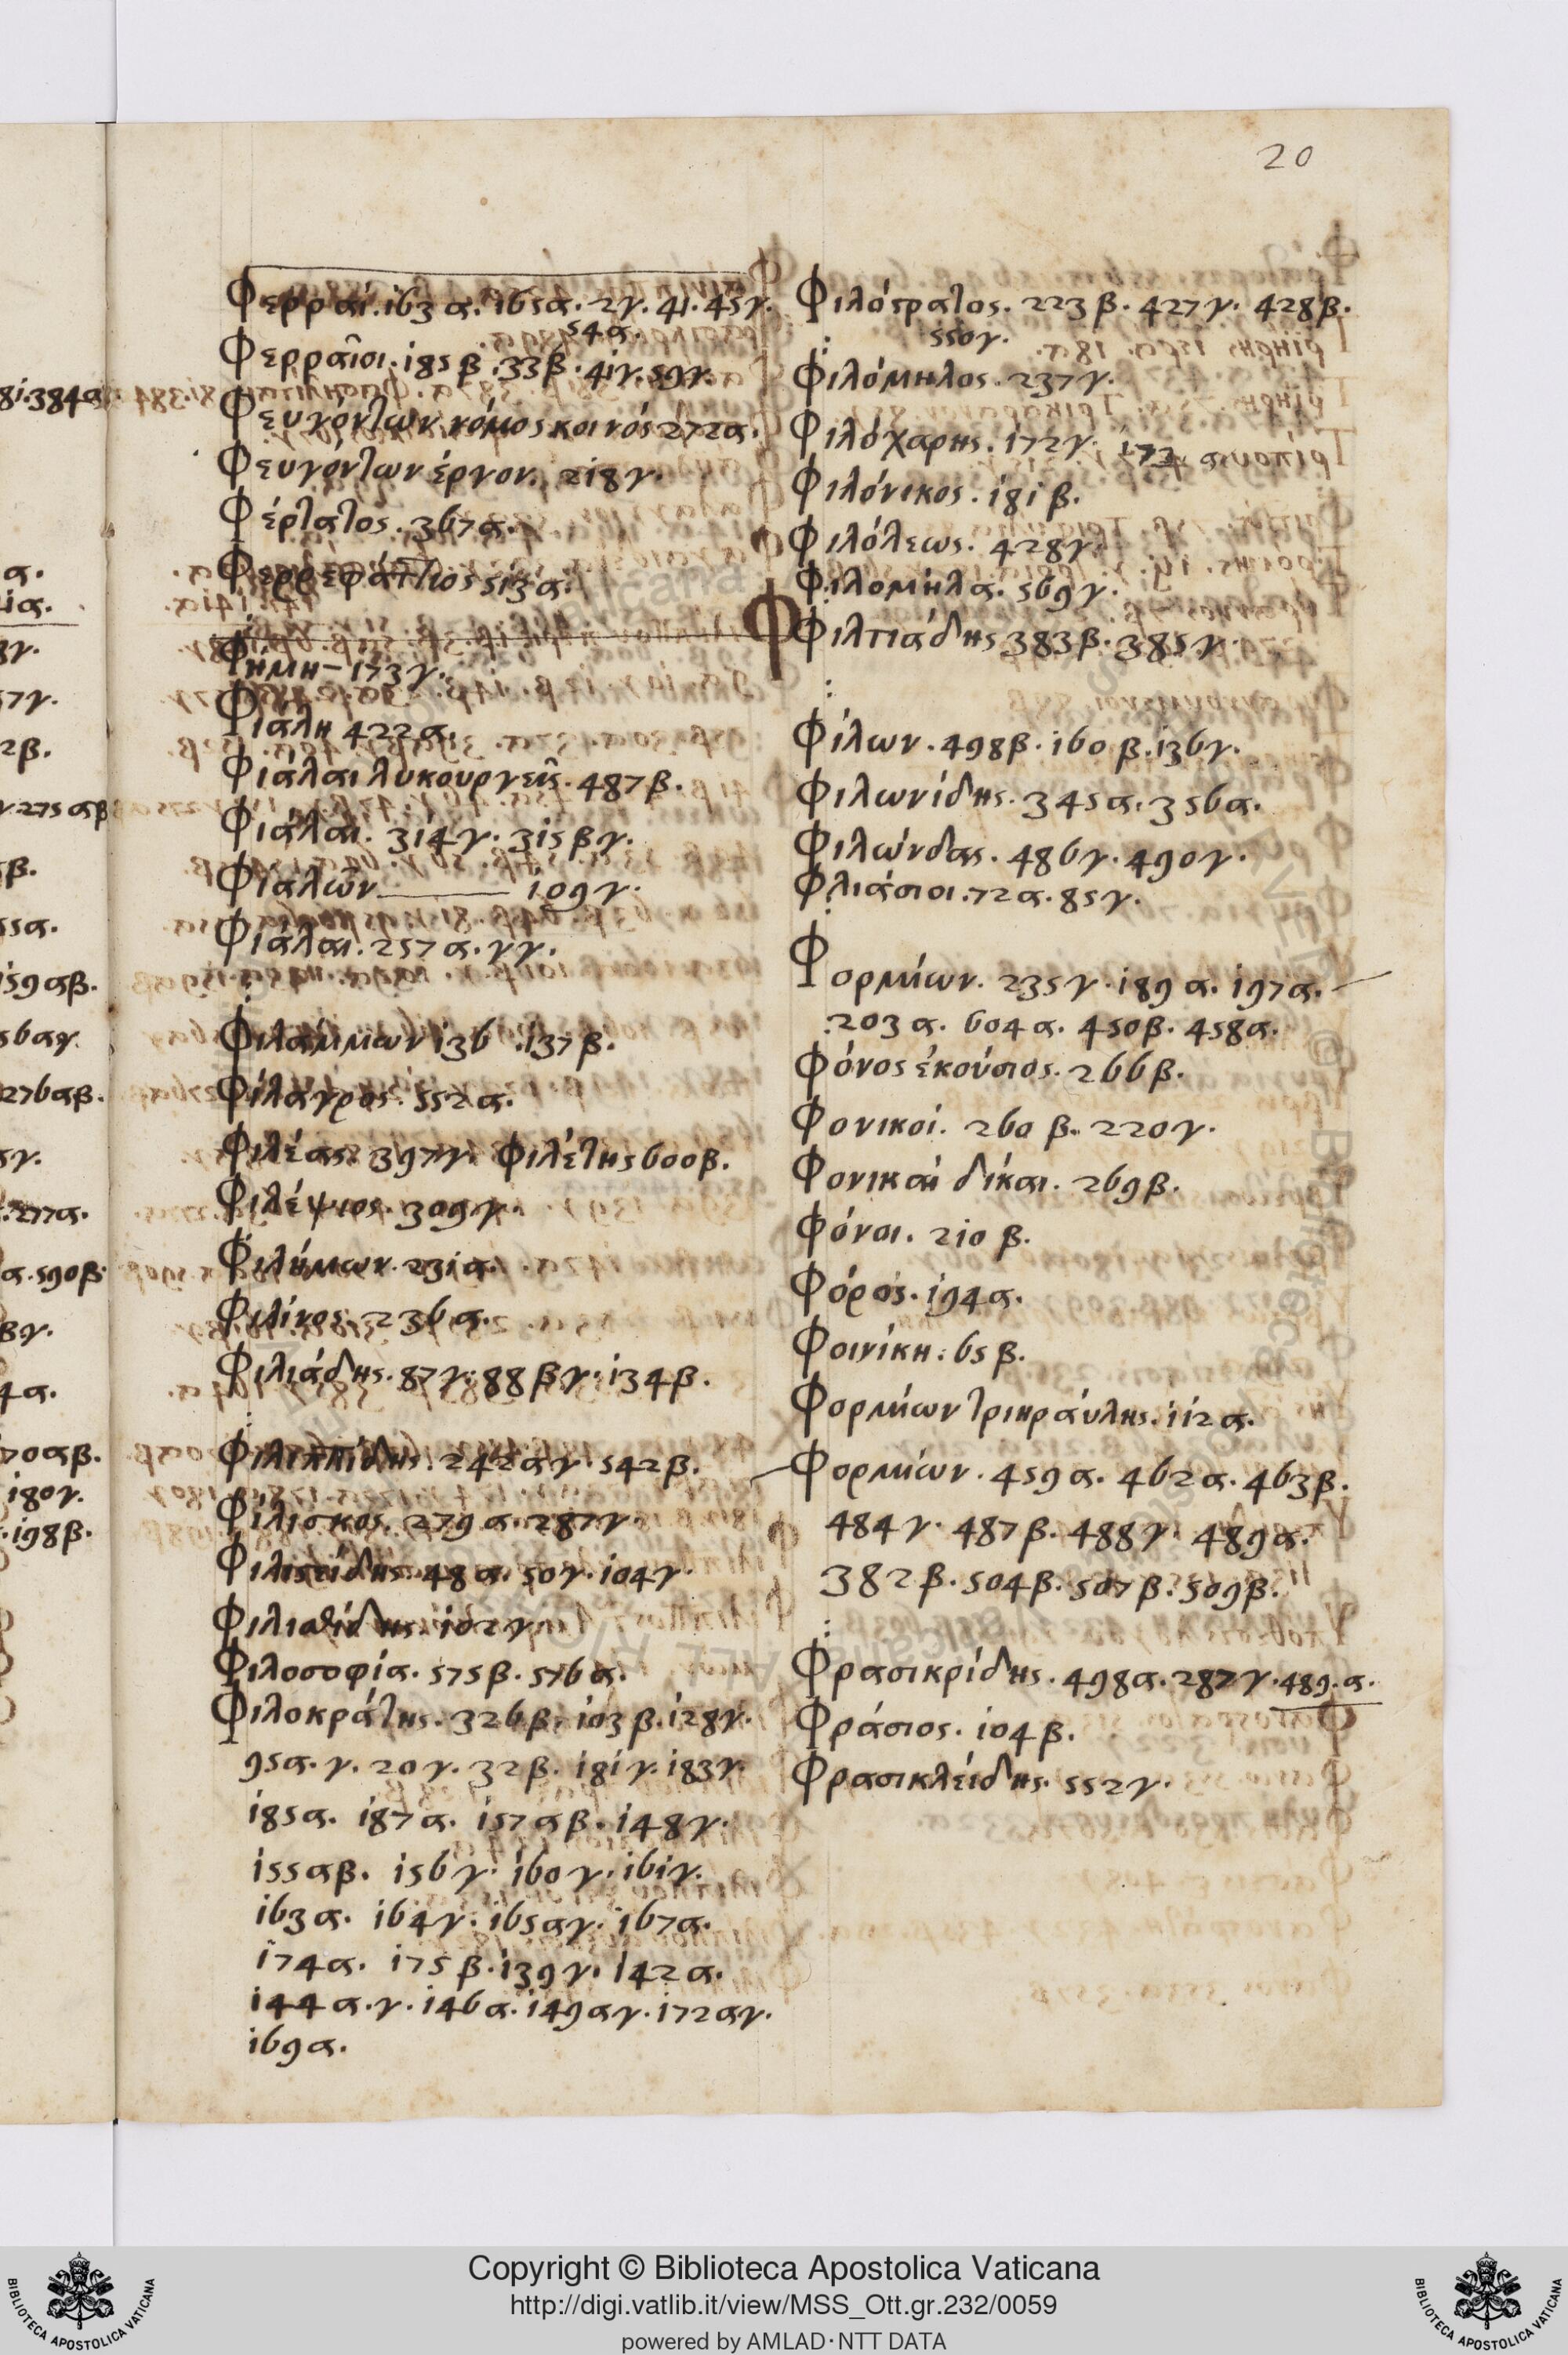 20
Φερραί. 163α. 165α. 2γ. 41. 45γ.
54α.
Φερραῖοι. 185β. 33β. 41γ. 59γ.
Φευγόντων νόμος κοινός 272α.
Φευγόντων έργον. 218γ.
Φέρτατος. 367α.
Φερρεφάττιος 513α.
Φήμη – 173γ.
Φιάλη 422α.
Φιάλαι λυκουργεῖς. 487β.
Φιάλαι. 314γ. 315βγ.
Φιαλῶν 109γ.
Φιάλαι. 257α. γγ.
Φιλάμμων 136 . 137β.
Φίλαγρος. 552α.
Φιλέας. 397γ. Φιλέτης 600β.
Φιλέψιος. 309γ.
Φιλήμων. 231α.
Φιλίνος. 236α.
Φιλιάδης. 87γ. 88βγ. 134β.
Φιλιππίδης. 242αγ. 542β.
Φιλίσκος. 279α. 287γ.
Φιλιστείδης. 48α. 50γ. 104γ.
Φιλιαθίδης. 102γ.
Φιλοσοφία. 575β. 576α.
Φιλοκράτης. 326β. 103β. 128γ.
95α. γ. 20γ. 32β. 181γ. 183γ.
185α. 187α. 157αβ. 148γ.
155αβ. 156γ. 160γ. 161γ.
163α. 164γ. 165αγ. 167α.
174α. 175β. 139γ. 142α.
144α. γ. 146α. 149αγ. 172αγ.
169α.
Φιλόστρατος. 223β. 427γ. 428β.
550γ.
Φιλόμηλος. 237γ.
Φιλόχαρης. 172γ. 173
Φιλόνικος. 181β.
Φιλόλεως. 428γ.
Φιλομήλα. 569γ.
Φιλτιάδης 383β. 385γ.
Φ
Φίλων. 498β. 160β. 136γ.
Φιλωνίδης. 345α. 356α.
Φιλώνδας. 486γ. 490γ.
Φλιάσιοι. 72α. 85γ.
Φορμίων. 235γ. 189α. 197α.
203α. 604α. 450β. 458α.
Φόνος ἑκούσιος. 266β.
Φονικοί. 260β. 220γ.
Φονικαὶ δίκαι. 269β.
Φόνοι. 210β.
Φόρος. 194α.
Φοινίκη. 65β.
Φορμίων τριηραύλης. 112α.
Φορμίων. 459α. 462α. 463β.
484γ. 487β. 488γ. 489α.
382β. 504β. 507β. 509β.
Φρασικρίδης. 498α. 287γ. 489. α.
Φράσιος. 104β.
Φρασικλείδης. 552γ.
Copyright © Biblioteca Apostolica Vaticana
http://digi.vatlib.it/view/MSS_Ott.gr.232/0059
powered by AMLAD·NTT DATA
BIBLIOTECA APOSTOLICA VATICANA
BIBLIOTECA APOSTOLICA VATICANA